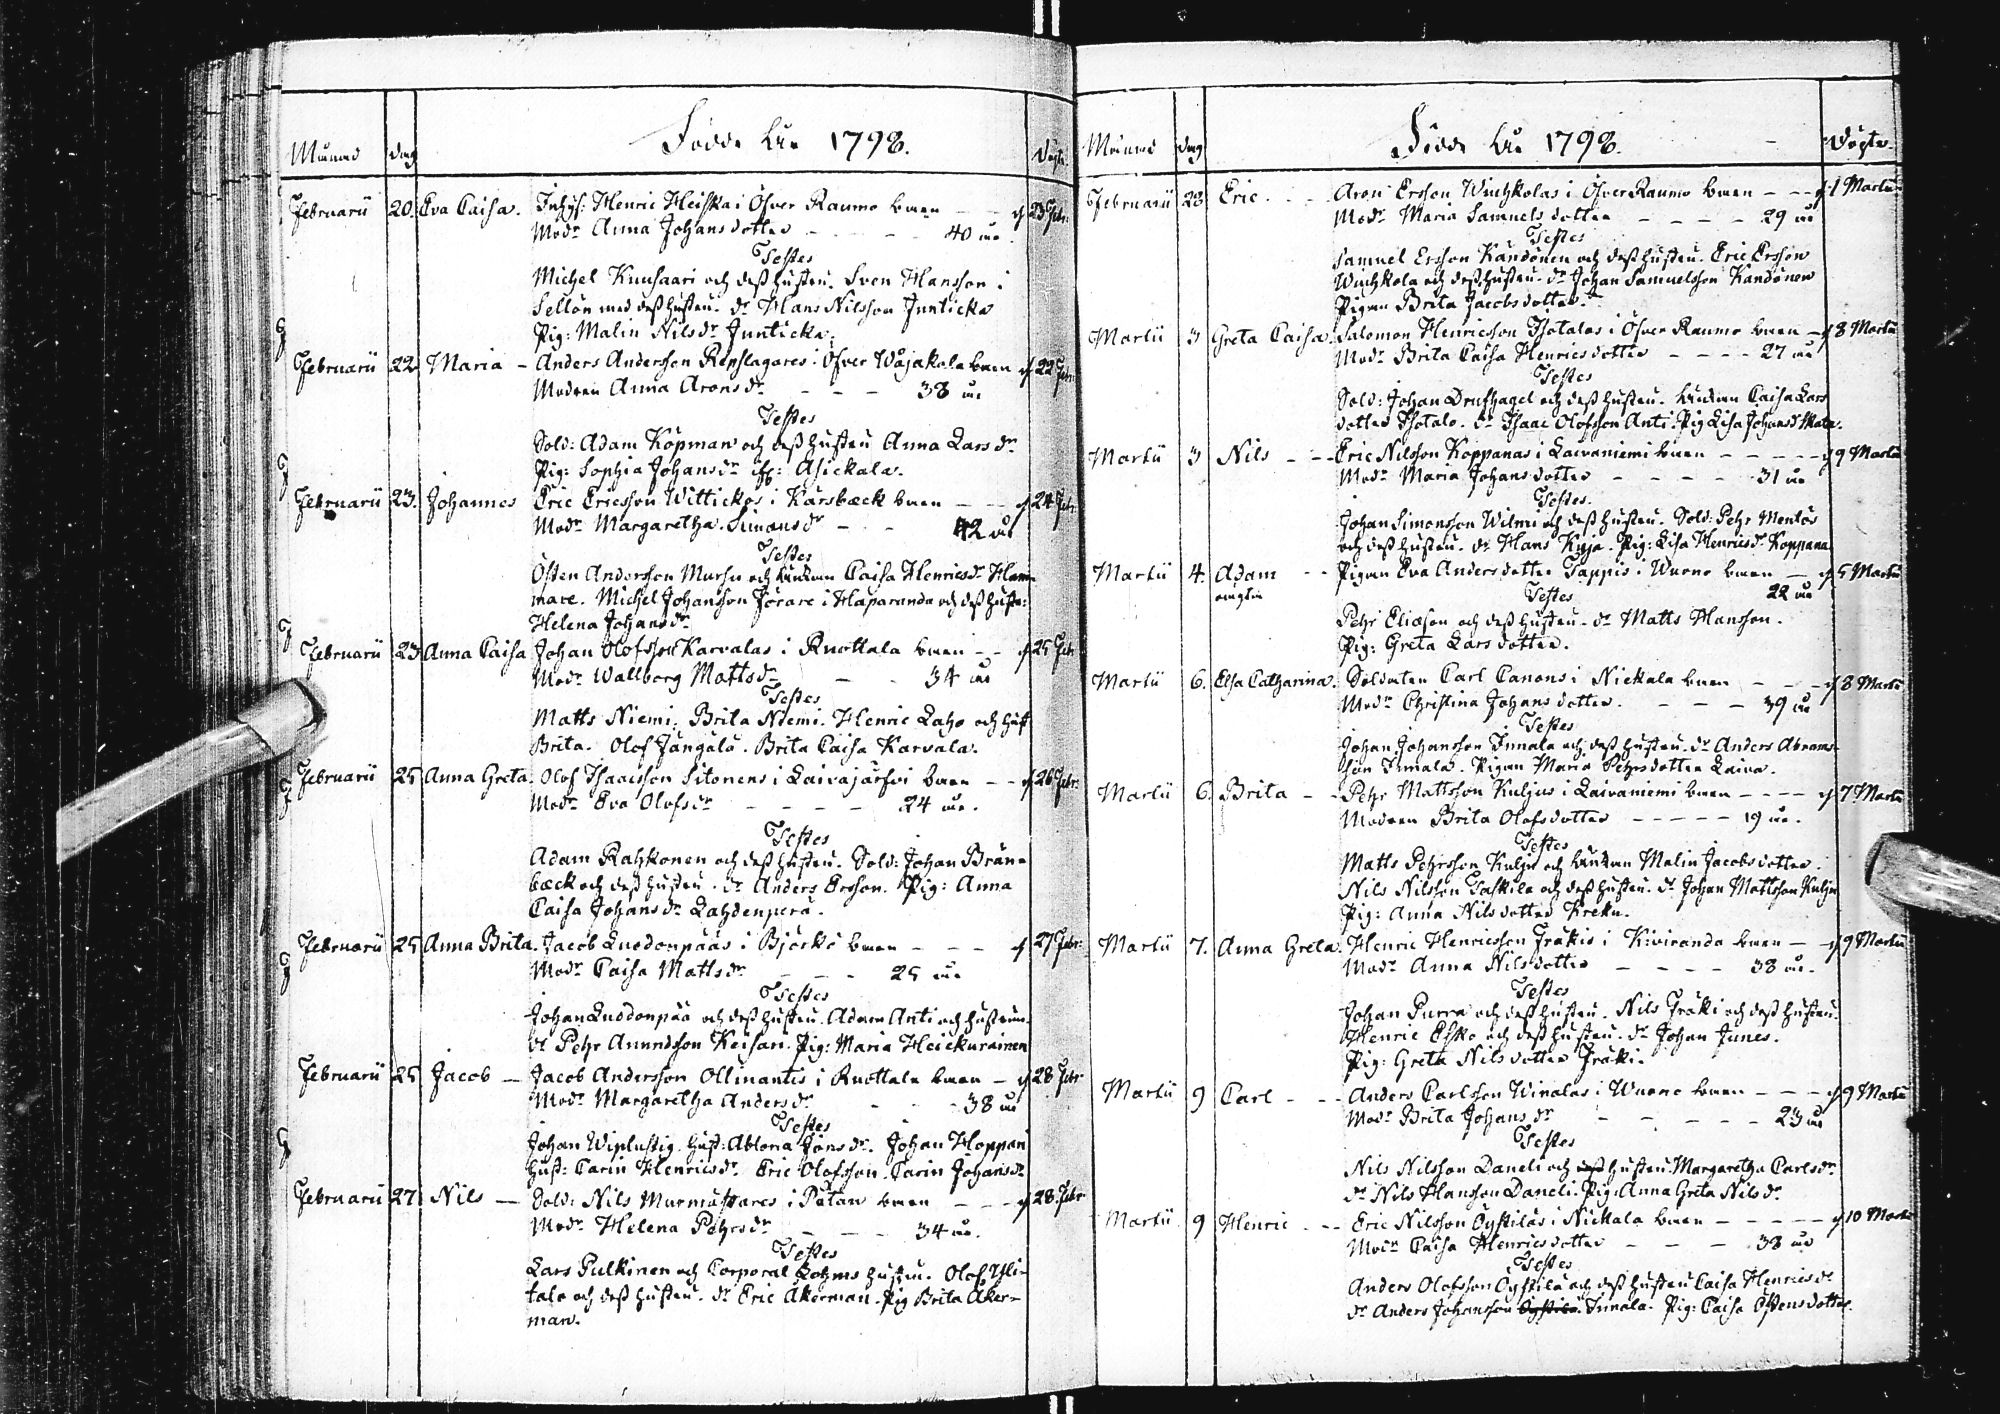 Månad dag Födde År 1798. Döpte.
Februarii 20. Eva Caisa. Inhys: Henric Heiska i Öfver Raumo Barn - - d 23 Febr:
Modr Anna Johansdotter - - - - 40 år.
Testes
Michel Kuusaari och dess hustru. Sven Hansson i
Sellön med dess hustru. dr Hans Nilsson Junticka
Pig: Malin Nilsdr Junticka.
Februarii 22. Maria - Anders Andersson Repslagares i Öfver Wojakala barn d 22 Febr:
Modren Anna Aronsdr - - - 38 år
Testes
Sold: Adam Köpman och dess hustru Anna Larsdr
Pig: Sophia Johansdr Asickala.
Februarii 23. Johannes Eric Ericsson Wittickos i Karsbäck barn - - d 24 Febr
Modr Margaretha Simonsdr - - 42 år
Testes
Östen Andersson Mursu och Caisa Henricsdr Ham-
mare. Michel Johansson Förare i Haparanda och dess hustr:
Helena Johansdr
Februarii 23 Anna Caisa Johan Olofsson Karvalas i Ruottala barn - - d 25 Febr
Modr Wallborg Mattsdr - - 34 år
Testes
Matts Niemi. Brita Niemi. Henric Laho och hust
Brita. Olof Jängälä. Brita Caisa Karvala.
Februarii 25 Anna Greta Olof Isaacsson Sitonens i Laivajärfvi barn - - d 26 Febr:
Modr Eva Olofsdr - - - - 24 år.
Testes
Adam Rahkonen och dess hustru. Sold: Johan Brän-
bäck och dess hustru. dr Anders Ersson. Pig: Anna
Caisa Johansdr Lahdenperä.
Februarii 25 Anna Brita. Jacob Luodonpääs i Björkö barn - - - d 27 Febr:
Modr Caisa Mattsdr - - - 25 år
Testes
Johan Luodonpää och dess hustru. Adam Anti och hustrun.
dr Pehr Anundsson Keisari. Pig: Maria Heickurainen
Februarii 25 Jacob - Jacob Andersson Ollinantis i Ruottala barn - d 28 Febr
Modr Margaretha Andersdr - - - 38 år
Testes
Johan Wiplustig. hust: Ablona Jönsdr. Johan Hoppari
hust: Carin Henricsdr. Eric Olofsson. Carin Johansdr
Februarii 27. Nils - Sold: Nils Murmästares i Putan barn - - - d 28 Febr
Modr Helena Pehrsdr - - - 34 år.
Testes
Lars Pulkinen och Corporal Bohms hustru. Olof Yli-
talo och dess hustru. dr Eric Åkerman. Pig Brita Åker-
man.
Månad dag Födde År 1798. Döpte.
Februarii 28 Eric - - Aron Ersson Wuihkolas i Öfver Raumo barn - - - d 1 Martii
Modr Maria Samuelsdotter - - - - 29 år
Testes
Samuel Ersson Kandonen och dess hustru. Eric Ersson
Wuihkola och dess hustru. dr Johan Samuelsson Kandonen
Pigan Brita Jacobsdotter.
Martii 3 Greta Caisa. Salomon Henricsson Isotalos i Öfver Raumo barn - d 8 Martii
Modr Brita Caisa Henricsdotter - - - - 27 år
Testes
Sold: Johan Drufhagel och dess hustru. Caisa Lars
dotter Isotalo. dr Isaac Olofsson Anti. Pig Lisa Johansd Skata.
Martii 3 Nils - - Eric Nilsson Koppanas i Laivaniemi barn - - - - - d 9 Martii
Modr Maria Johansdotter - - - - 31 år
Testes.
Johan Simonsson Wilmi och dess hustru. Sold: Pehr Mentös
och dess hustru. dr Hans Kuja. Pig: Lisa Henricsdr Koppana
Martii 4. Adam - - Pigan Eva Andersdotter Tappis i Wuono barn - - d 5 Martii
oägta Testes 22 år
Pehr Eliason och dess hustru. dr Matts Hansson.
Pig: Greta Larsdotter.
Martii 6. Elsa Catharina. Soldaten Carl Canons i Nickala barn - - - d 8 Martii
Modr Christina Johansdotter. - - - 39 år
Testes
Johan Johansson Innala och dess hustru. dr Anders Abrams-
son Innala. Pigan Maria Pehrsdotter Laiva.
Martii 6. Brita - - Pehr Mattsson Kuljus i Laivaniemi barn - - - - d 7 Martii
Modren Brita Olofsdotter - - - - - 19 år.
Testes
Matts Pehrsson Kulju och Malin Jacobsdotter.
Nils Nilsson Taskila och dess hustru. dr Johan Mattsson Kulju
Pig: Anna Nilsdotter Kreku.
Martii 7. Anna Greta. Henric Henricsson Fräkis i Kiviranda barn - - d 9 Martii
Modr Anna Nilsdotter - - - - 38 år.
Testes
Johan Purra och dess hustru. Nils Fräki och dess hustru.
Henric Esko och dess hustru. dr Johan Junes.
Pig: Greta Nilsdotter Fräki.
Martii 9 Carl - - - Anders Carlsson Winalas i Wuono barn - - - d 9 Martii
Modr Brita Johansdr - - - - - 23 år
Testes
Nils Nilsson Daneli och dess hustru Margaretha Carlsdr
dr Nils Hansson Daneli. Pig: Anna Greta Nilsdr
Martii 9 Henric - - Eric Nilsson Öystiläs i Nickala barn - - - - - d 10 Martii
Modr Caisa Henricsdotter - - - 38 år
Testes
Anders Olofsson Öystilä och dess hustru Caisa Henricsdr
dr Anders Johansson Öystilä Innala. Pig: Caisa Östensdotter.